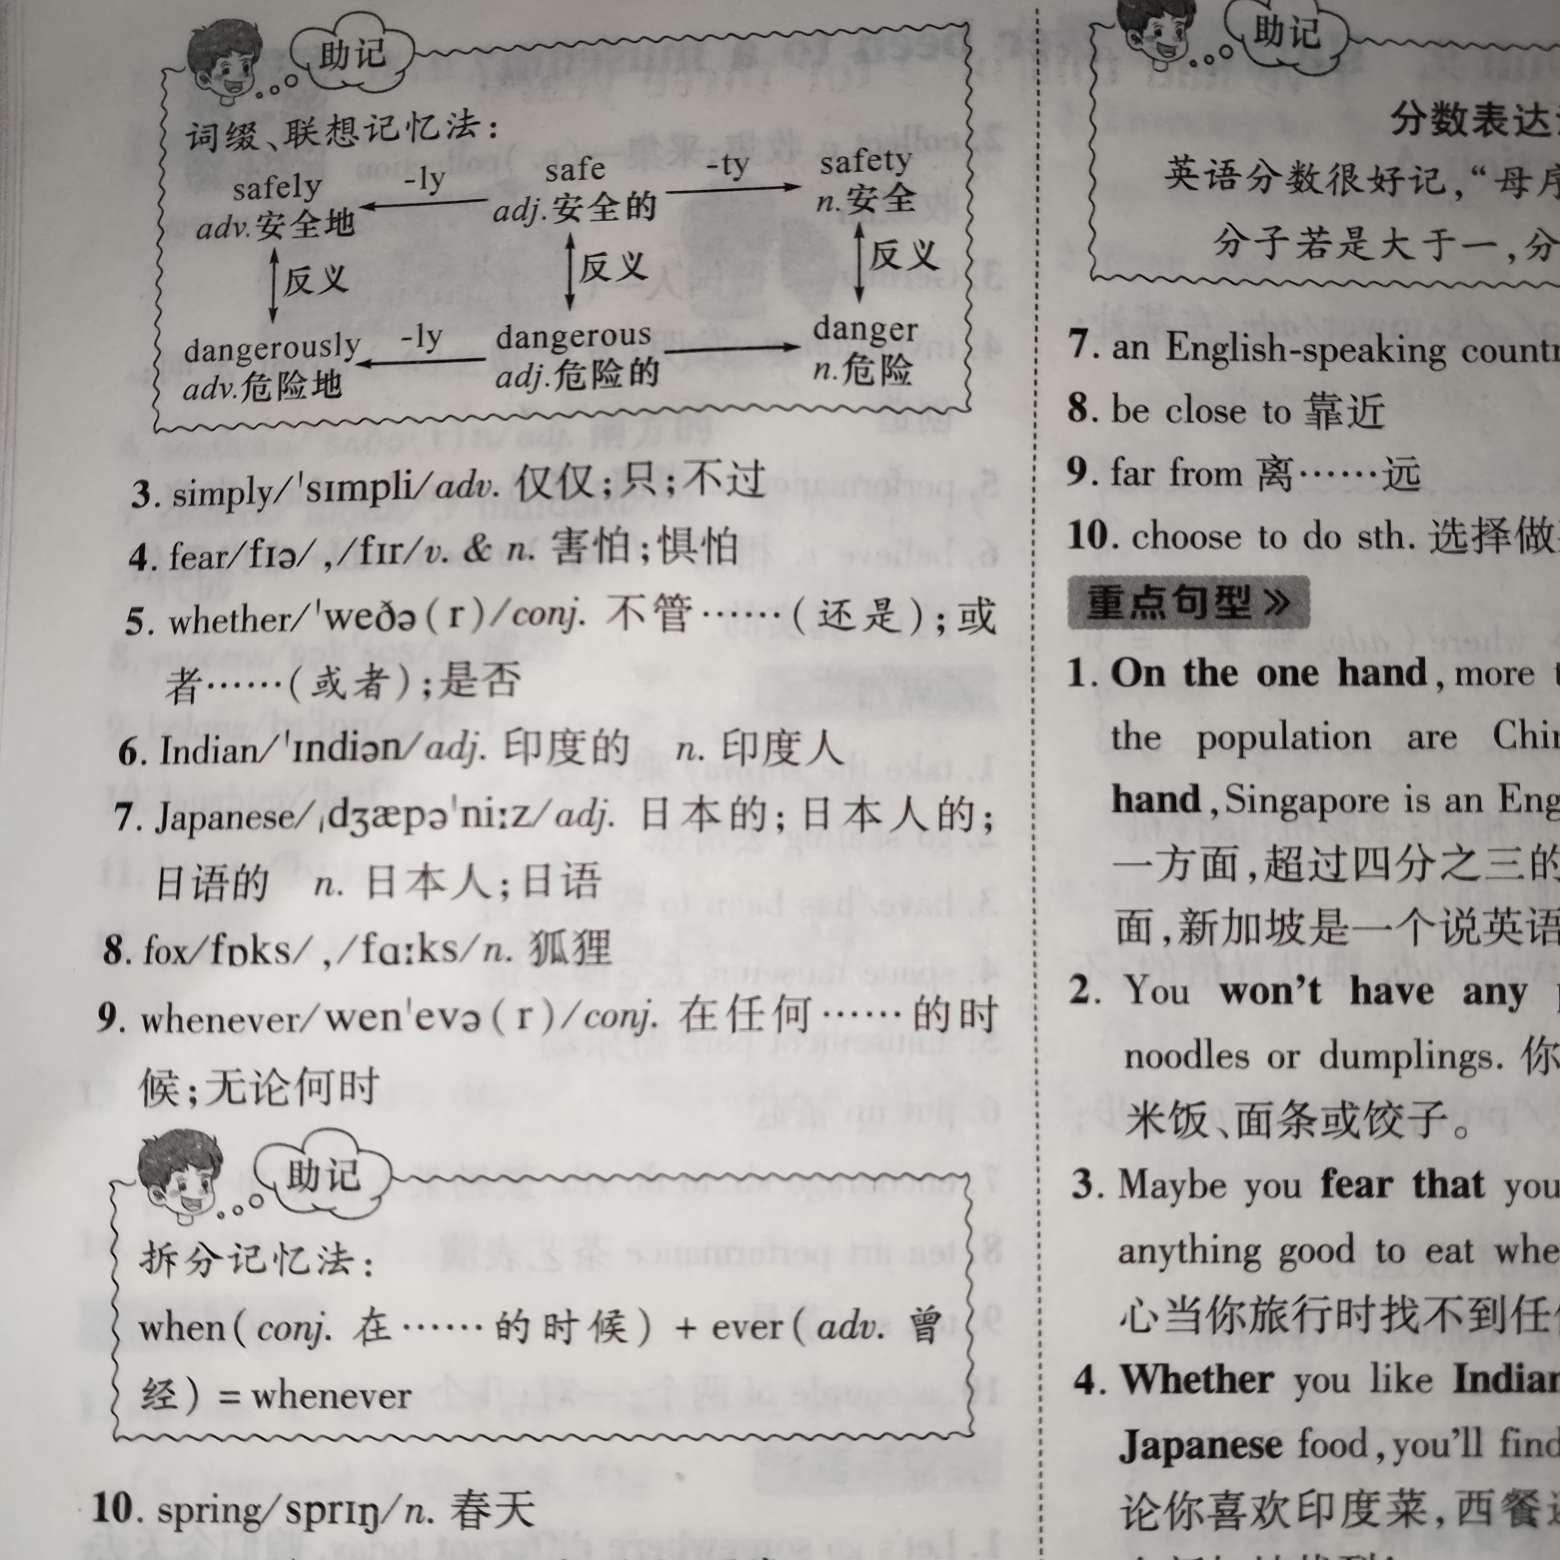 助记
词缀、联想记忆法：
safely -ly safe -ty safety
adv.安全地 adj.安全的 n.安全
反义 反义 反义
dangerously -ly dangerous danger
adv.危险地 adj.危险的 n.危险
3. simply/ˈsɪmpli/adv. 仅仅；只；不过
4. fear/fɪə/ ,/fɪr/v. & n. 害怕；惧怕
5. whether/ˈweðə(r)/conj. 不管……(还是)；或
者……(或者)；是否
6. Indian/ˈɪndiən/adj. 印度的 n. 印度人
7. Japanese/ˌdʒæpəˈniːz/adj. 日本的；日本人的；
日语的 n. 日本人；日语
8. fox/fɒks/ ,/fɑːks/n. 狐狸
9. whenever/wenˈevə(r)/conj. 在任何……的时
候；无论何时
助记
拆分记忆法：
when(conj. 在……的时候) + ever(adv. 曾
经) = whenever
10. spring/sprɪŋ/n. 春天
助记
分数表达
英语分数很好记，“母序
分子若是大于一，分
7. an English-speaking countr
8. be close to 靠近
9. far from 离……远
10. choose to do sth. 选择做
重点句型
1. On the one hand, more
the population are Chin
hand, Singapore is an Eng
一方面，超过四分之三的
面，新加坡是一个说英语
2. You won't have any
noodles or dumplings. 你
米饭、面条或饺子。
3. Maybe you fear that you
anything good to eat whe
心当你旅行时找不到任
4. Whether you like Indian
Japanese food, you'll find
论你喜欢印度菜，西餐